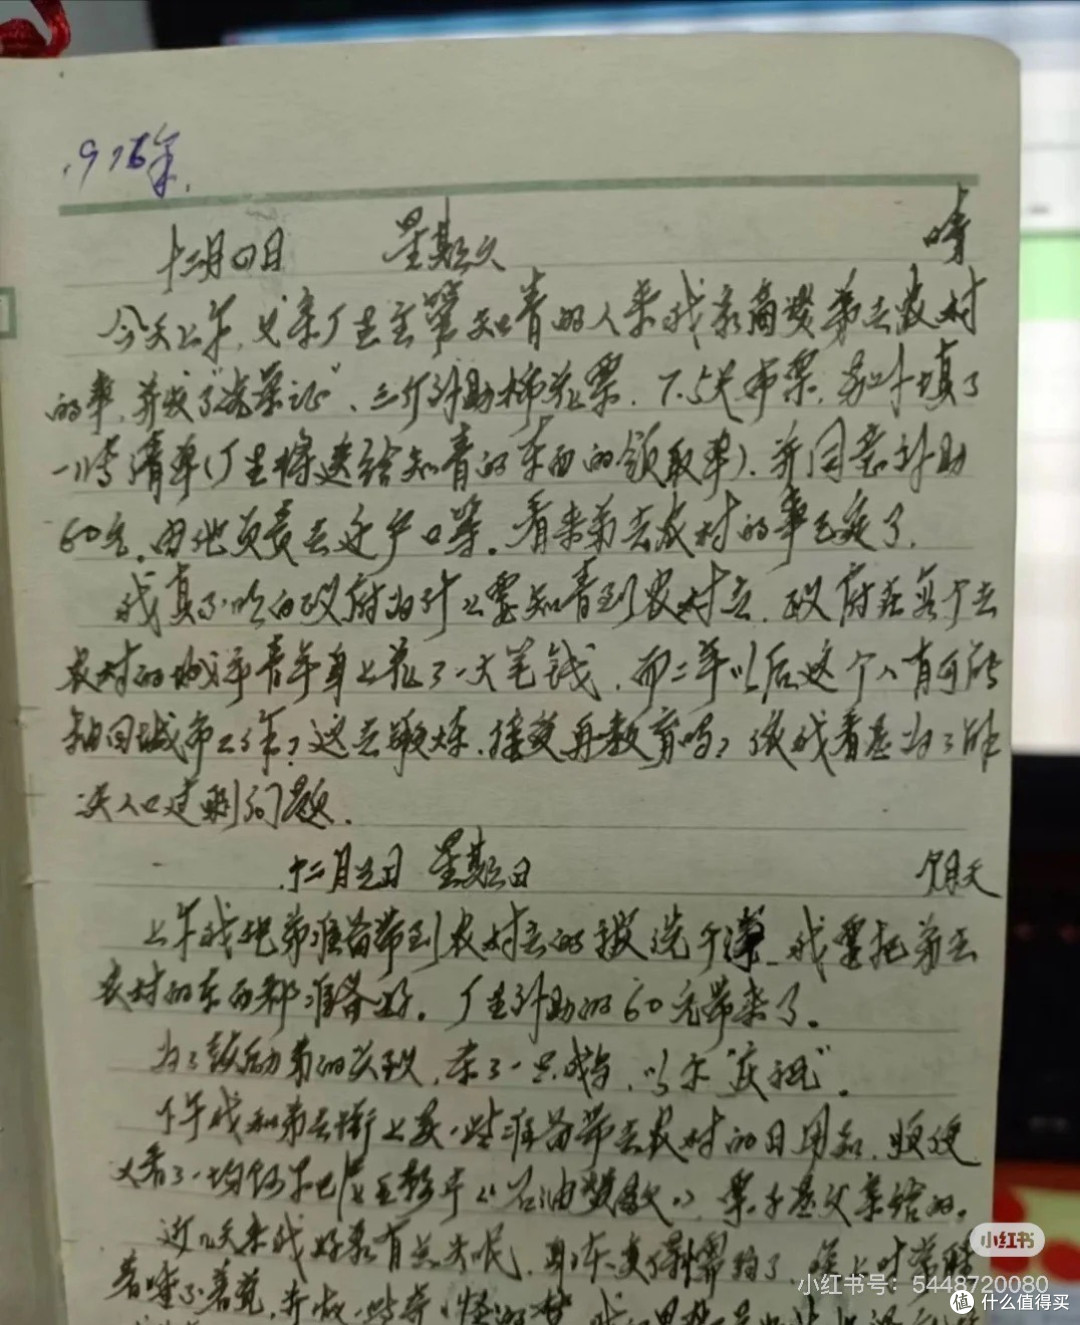 1976年.
十二月四日 星期六 晴
今天上午,父亲厂里主管知青的人来我家商谈弟去农村
的事,并发了"光荣证"、三斤补助棉花票,7.5尺布票,另外填了
一张清单(厂里将送给知青的东西的领取单),并同意补助
60元,由他负责去迁户口等。看来弟去农村的事已定了.
我真不明白政府为什么要知青到农村去,政府在每个去
农村的城市青年身上花了一大笔钱,而二年以后这个人有可能
抽回城市工作,这是锻炼、接受再教育吗?依我看是为了解
决人口过剩问题.
十二月五日 星期日 阴天
上午我把弟准备带到农村去的被洗干净,我要把弟去
农村的东西都准备好。厂里补助的60元带来了。
为了鼓励弟的,杀了一只鸡,以示"庆祝"。
下午我和弟去街上买一些准备带去农村的日用品,顺便
又看了一场《》,票子是父亲给的。
近几天来我好象有点失眠,晚上时常睡
着睡不着觉,并做一些奇怪的梦
小红书
小红书号:5448720080
值 什么值得买